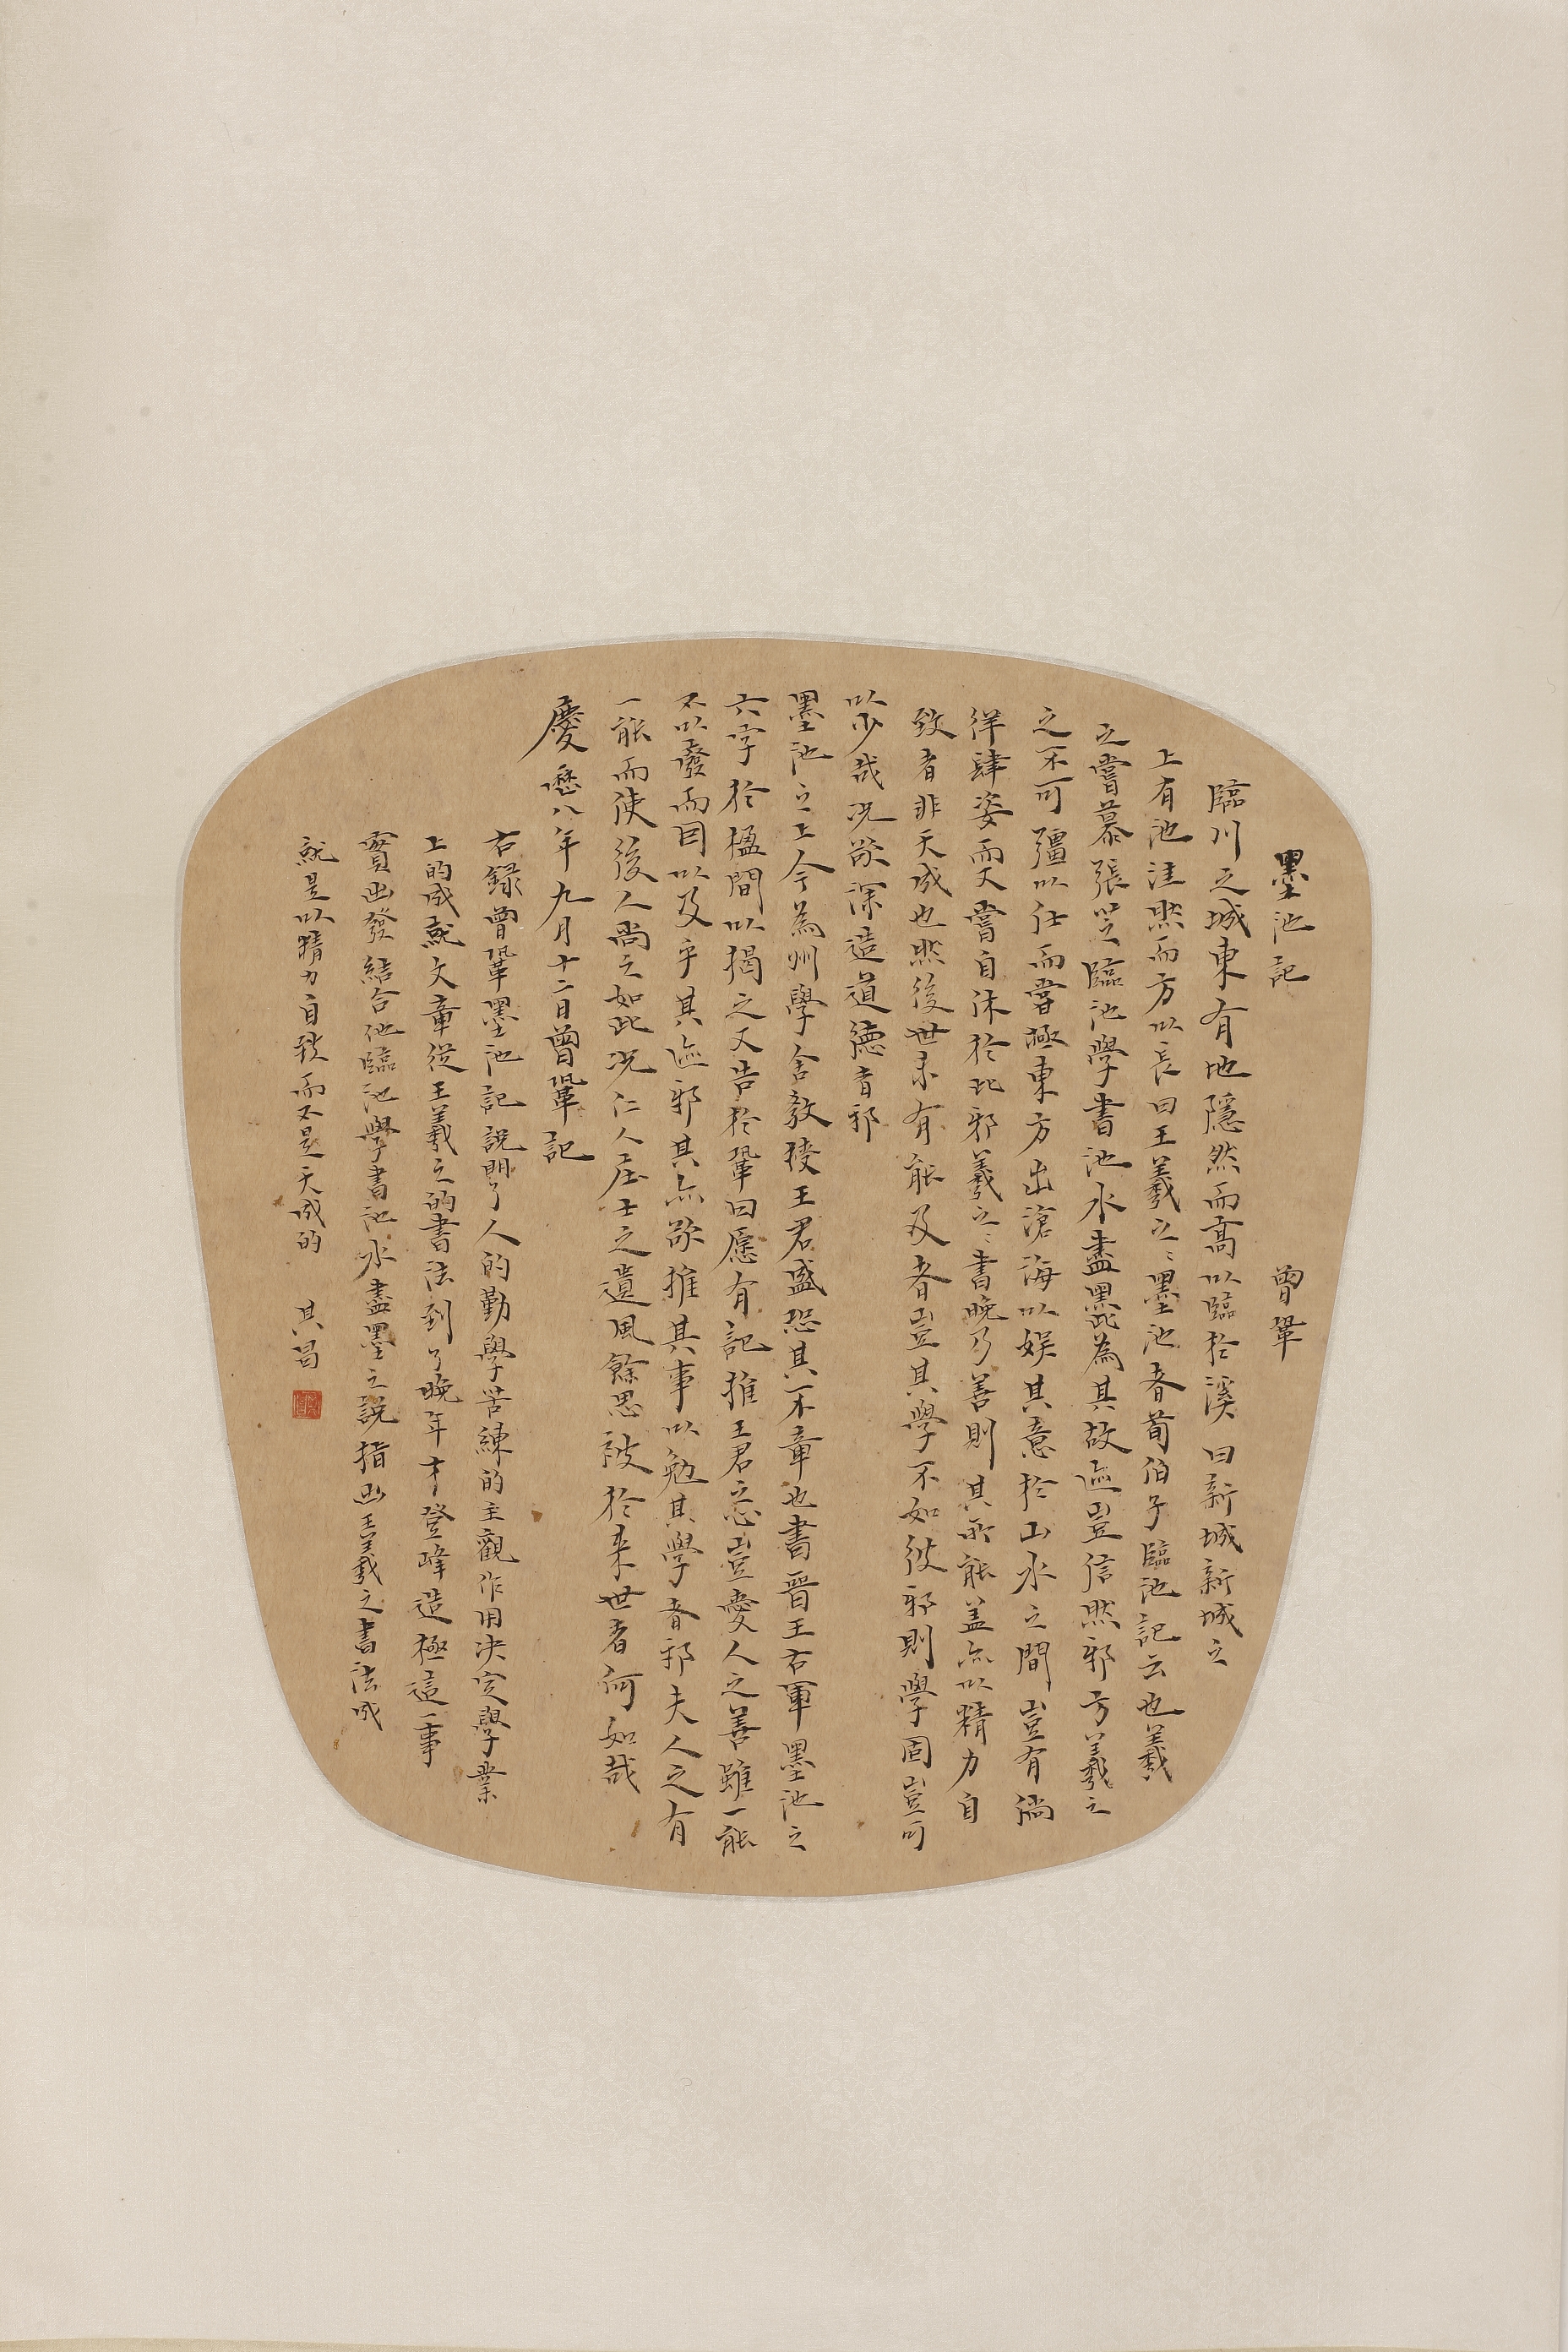 墨池記 曾鞏
臨川之城東有地隱然而高以臨於溪曰新城新城之
上有池洼然而方以長曰王羲之〻墨池者荀伯子臨池記云也羲
之嘗慕張芝臨池學書池水盡黑此為其故迹豈信然邪方羲之
之不可彊以仕而嘗極東方出滄海以娱其意於山水之間豈有徜
徉肆姿而又嘗自休於此邪羲之〻書晚乃善則其所能盖亦以精力自
致者非天成也然後世未有能及者豈其學不如彼邪則學固豈可
以少哉况欲深造道德者邪
墨池之上今為州學舍教授王君盛恐其不章也書晋王右軍墨池之
六字於楹間以揭之又告於鞏曰愿有記推王君之心豈愛人之善雖一能
不以廢而因以及乎其迹邪其亦欲推其事以勉其學者邪夫人之有
一能而使後人尚之如此况仁人莊士之遺風餘思被於来世者何如哉
慶曆八年九月十二日曾鞏記
右録曾鞏墨池記説明了人的勤學苦練的主觀作用决定學業
上的成就文章從王羲之的書法到了晚年才登峰造極這一事
實出發結合他臨池學書池水盡墨之説指出王羲之書法成
就是以精力自致而不是天成的 其昌